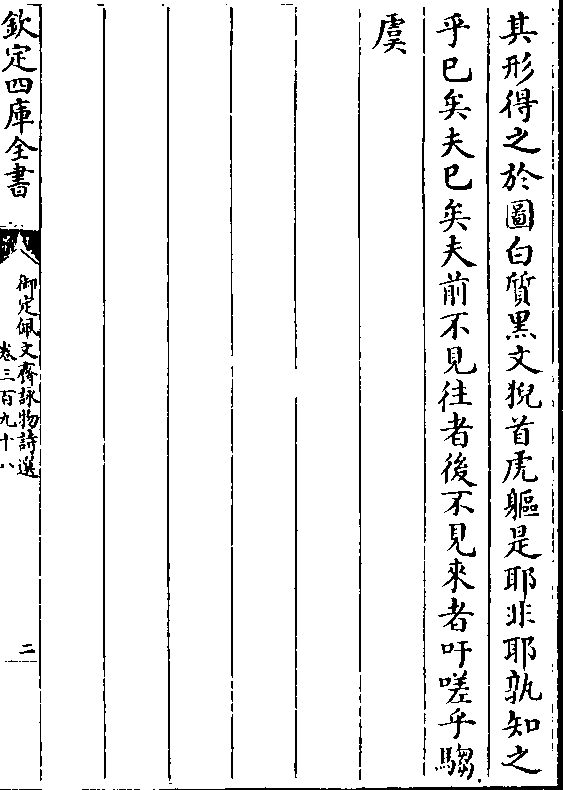 其形得之於圖白質黑文猊首虎軀是耶非耶孰知之
乎已矣夫已矣夫前不見往者後不見來者吁嗟乎騶
虞
欽定四庫全書
御定佩文齋詠物詩選
卷三百九十八
二